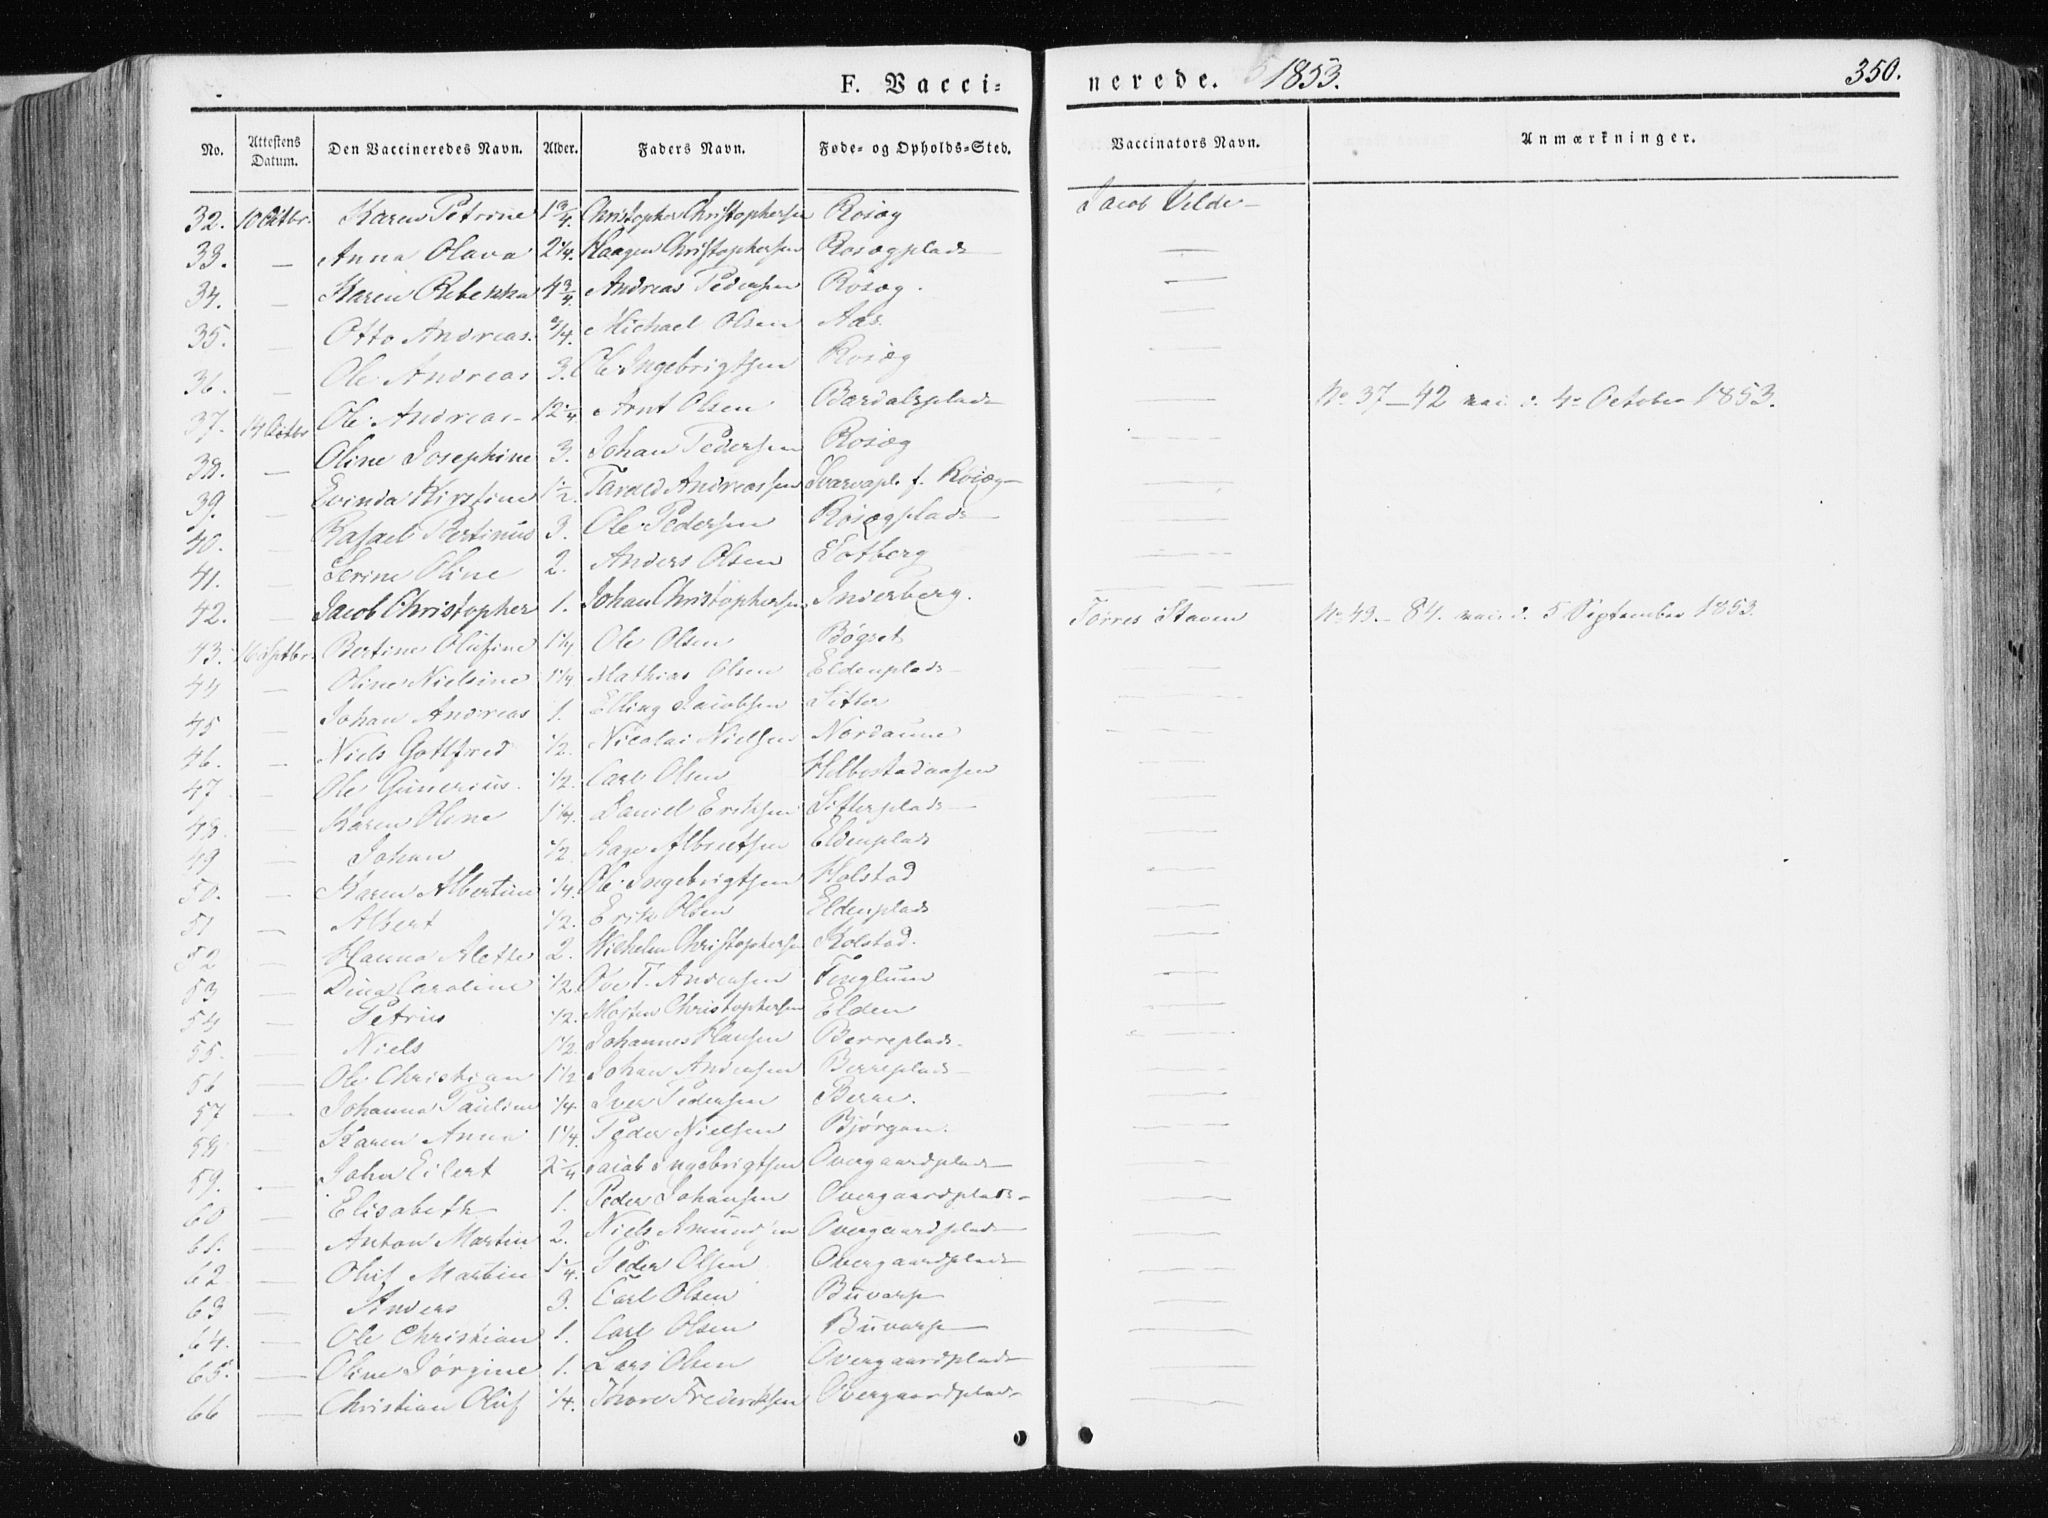 F. Vacci= nerede. 1853. 350.
No. Attestens Datum. Den Vaccineredes Navn. Alder. Faders Navn. Føde- og Opholds-Sted. Vaccinators Navn. Anmærkninger.
32. 10 Octbr. Karen Petrine 1 3/4. Christopher Christophersen Rosæg Jacob Velde
33. — Anna Olava 2 1/4. Haagen Christophersen Rosægplads —
34. — Karen Rebekka 4 3/4. Andreas Pedersen Rosæg. —
35. — Otto Andreas. 3/4. Michael Olsen Aas. —
36. — Ole Andreas 3. Ole Ingebrigtsen Rosæg —
37. 14 Octbr Ole Andreas 12 1/4 Arnt Olsen Bardalsplads — No 37–42 vac. d. 4 October 1853.
38. — Oline Josephine 3. Johan Pedersen Rosæg —
39. — Evinda Kirstine 1 1/2. Tarald Andreassen f. Rosæg —
40. — Rafael Bertinus 3. Ole Pedersen Rosægplads —
41. — Serine Oline 2. Anders Olsen Totberg —
42. — Jacob Christopher 1. Johan Christophersen Inderberg. —
43. 16 Septbr. Bertine Olufine 1 1/4 Ole Olsen Bøgset Torres Staven No 43.–84. vac. d. 5 September 1853.
44 — Oline Nielsine 1 1/4 Mathias Olsen Eldenplads —
45 — Johan Andreas 1. Elling Jacobsen Sitter —
46. — Niels Gottfred 1/2. Nicolai Nielsen Nordaune —
47 — Ole Gunerius. 1/2. Carl Olsen Helbostadaasen —
48. — Karen Oline 1 1/4. Daniel Eriksen Sitterplads —
49 — Johan 1/2. Aage Albretsen Eldenplads —
50. — Karen Albertine 1/4. Ole Ingebrigtsen Holstad —
51 — Albert 1/2. Erik Olsen Eldenplads —
52 — Hanna Alette 2. Wilhelm Christophersen Kolstad. —
53 — Dina Caroline 1/2. Ove T. Andersen Tinglum —
54 — Petrus 1/2. Morten Christophersen Elden —
55. — Niels 1 1/2 Johannes Hansen Berreplads. —
56 — Ole Christian 1 1/2 Johan Andersen Berreplads —
57 — Johanna Pauline 1/4. Iver Pedersen Berre. —
58 — Karen Anna 1 1/4. Peder Nielsen Bjørgan. —
59. — John Eilert 2 1/4 Jacob Ingebrigtsen Overgaardplads —
60 — Elisabeth 1. Peder Johansen Overgaardplads —
61. — Anton Martin 2. Niels Amundsen Overgaardplads —
62 — Oluf Martin 1 1/4. Peder Olsen Overgaardplads —
63 — Anders 3. Carl Olsen Buvarp —
64. — Ole Christian 1. Carl Olsen Buvarp —
65. — Oline Jørgine 1. Lars Olsen Overgaardplads —
66 — Christian Oluf 1/4. Thore Frederiksen Overgaardplads —